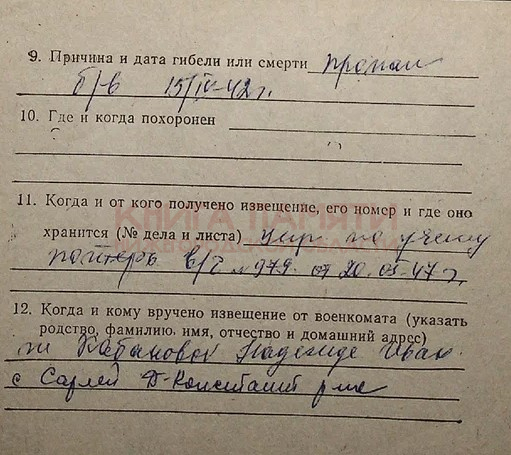 9. Причина и дата гибели или смерти пропал
б/в 15/IV-42 г.
10. Где и когда похоронен
КНИГА ПАМЯТИ
11. Когда и от кого получено извещение, его номер и где оно
хранится (№ дела и листа) упр. по учету
потерь в/г №979 от 20.05-47 г.
12. Когда и кому вручено извещение от военкомата (указать
родство, фамилию, имя, отчество и домашний адрес)
Кабановой Надежде Иван.
с Сарлей Д-Конст